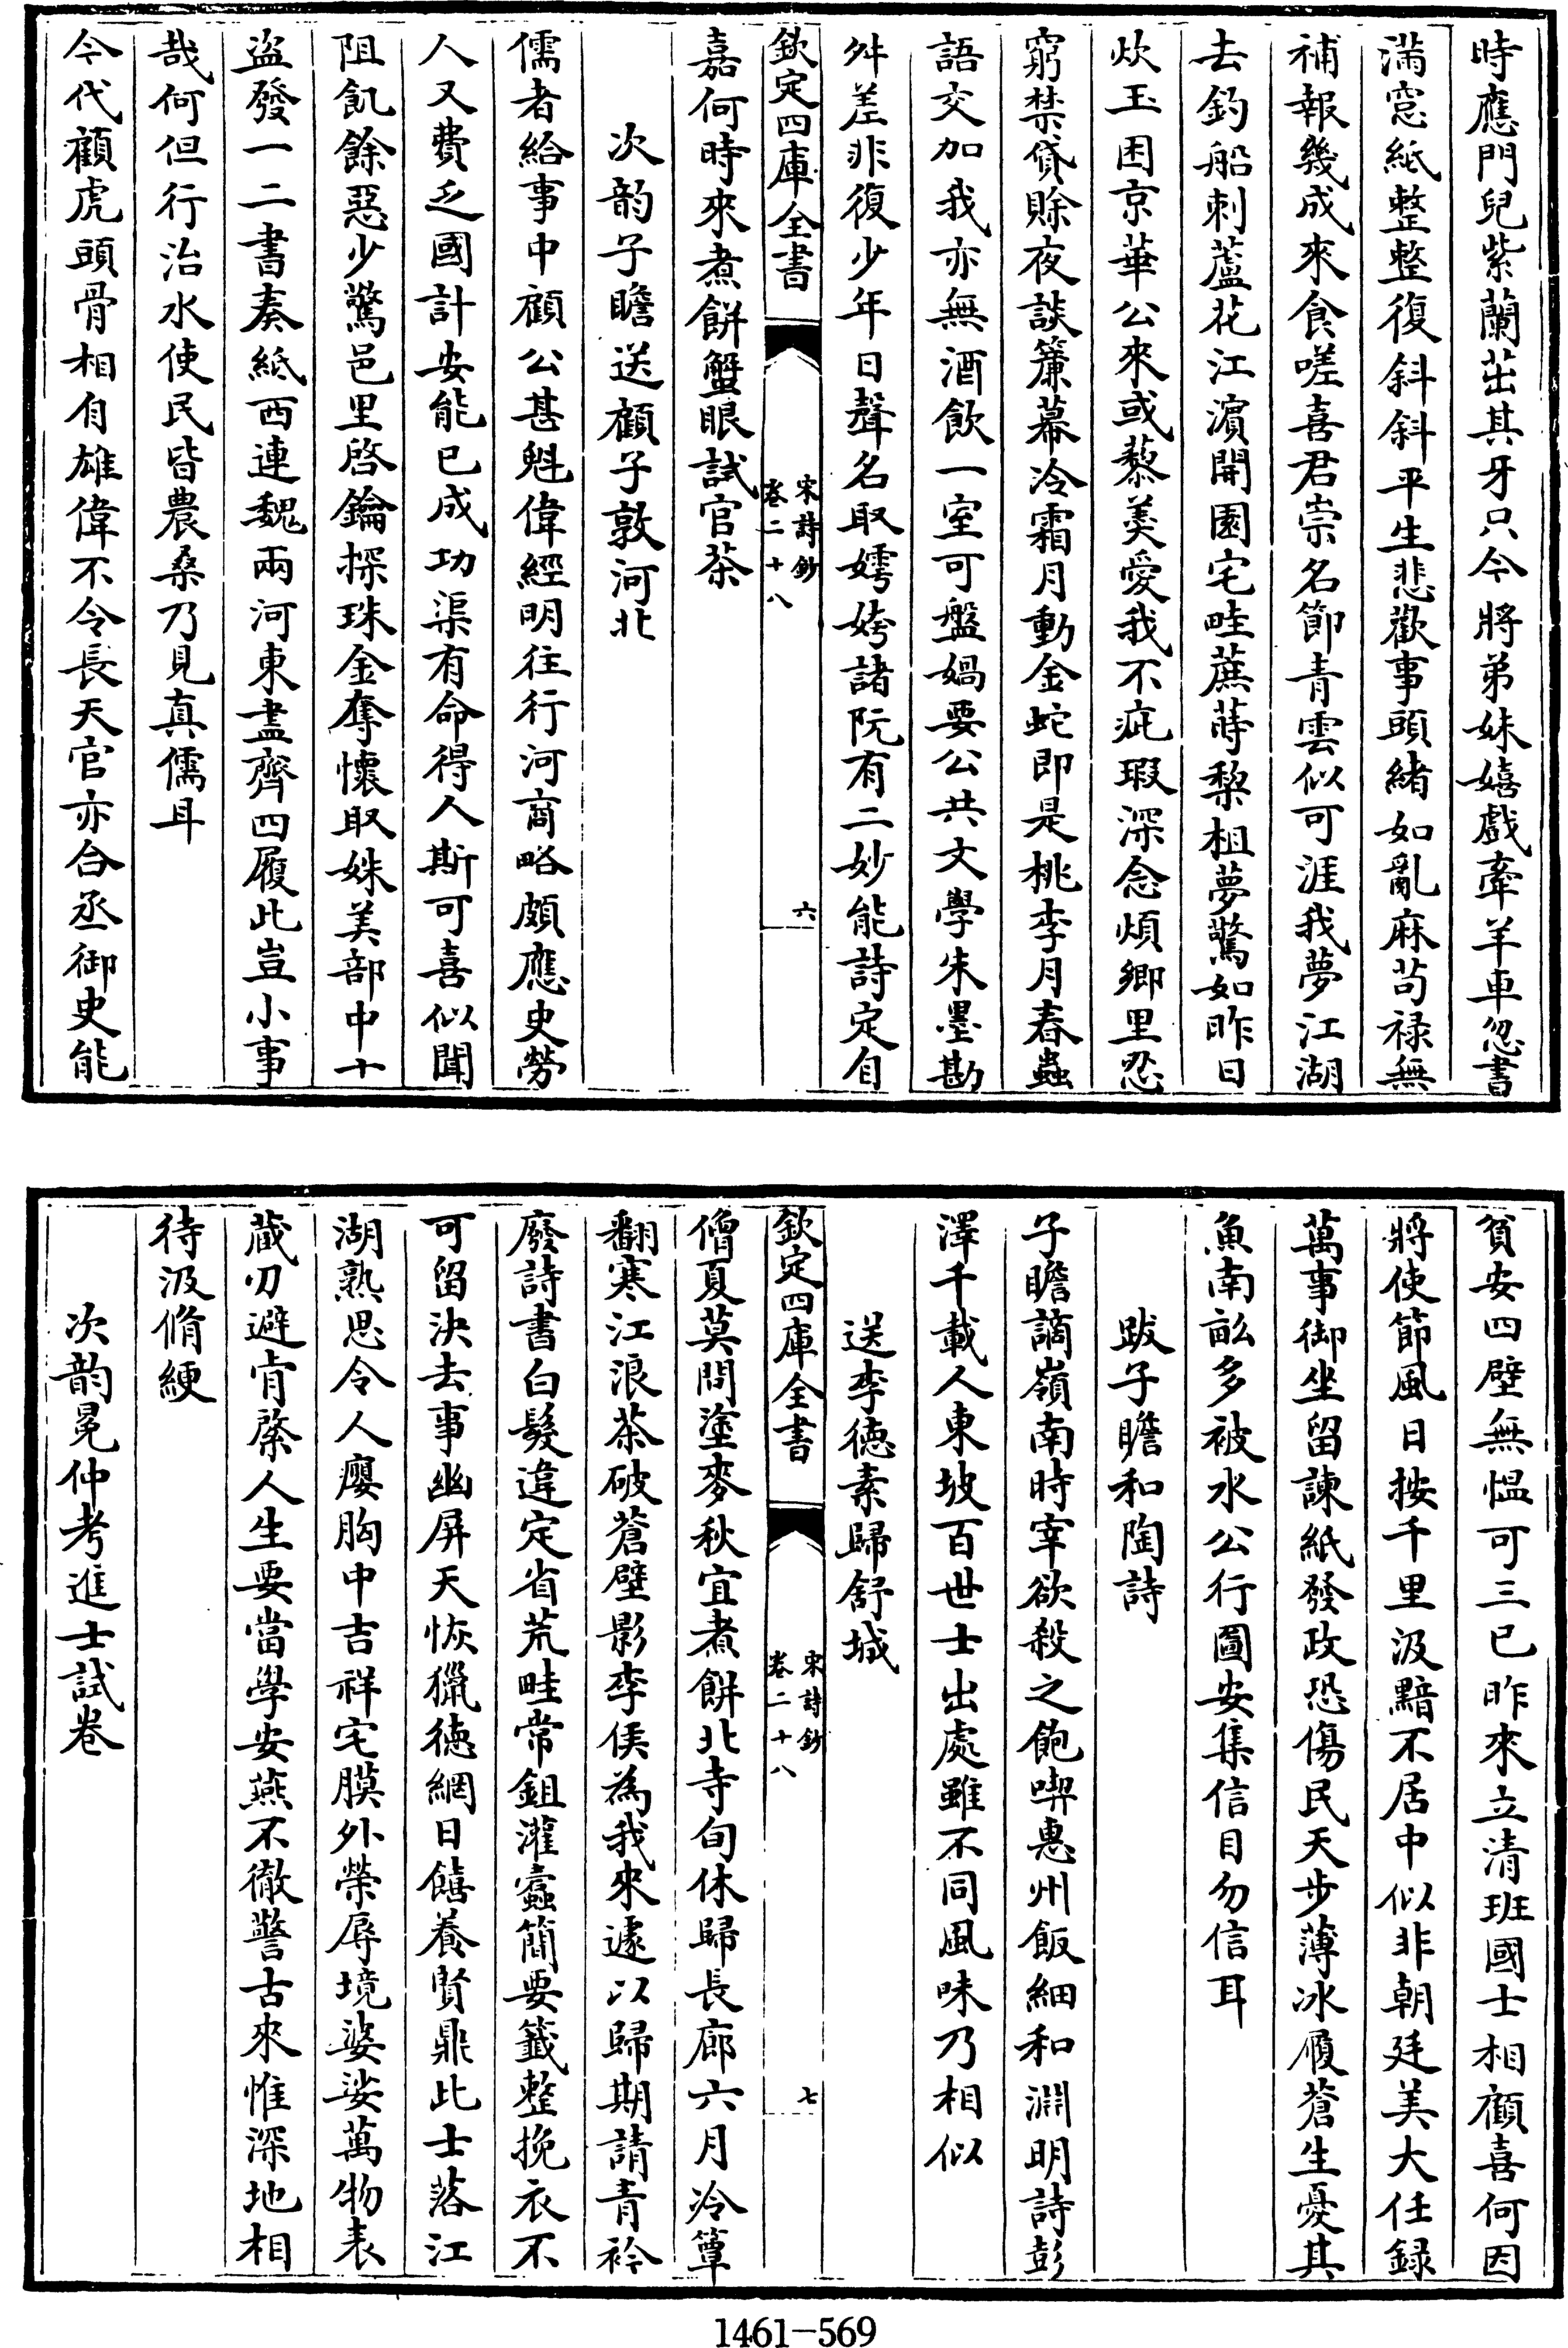 時應門兒紫蘭茁其牙只今將弟妹嬉戲牽羊車忽書
滿窓紙整整復斜斜平生悲歡事頭緒如亂麻茍禄無
補報幾成來食嗟喜君崇名節青雲似可涯我夢江湖
去釣船刺蘆花江濵開園宅畦蔗蒔棃柤夢驚如昨日
炊玉困京華公來或藜羮愛我不疵瑕深念煩鄉里忍
窮禁貸賖夜談簾幕冷霜月動金蛇即是桃李月春蟲
語交加我亦無酒飲一室可盤媧要公共文學朱墨勘
舛差非復少年日聲名取嫮姱諸阮有二妙能詩定自
欽定四庫全書
宋詩鈔
卷二十八
六
嘉何時來煮餅蟹眼試官茶
次韵子瞻送顧子敦河北
儒者給事中顧公甚魁偉經明往行河商略頗應史勞
人又費乏國計安能已成功渠有命得人斯可喜似聞
阻飢餘惡少驚邑里啓鑰探珠金奪懷取姝美部中十
盗發一二書奏紙西連魏兩河東盡齊四履此豈小事
哉何但行治水使民皆農桑乃見真儒耳
今代顧虎頭骨相自雄偉不令長天官亦合丞御史能
貧安四壁無愠可三已昨來立清班國士相顧喜何因
將使節風日按千里汲黯不居中似非朝廷美大任録
萬事御坐留諫紙發政恐傷民天步薄冰履蒼生憂其
魚南畝多被水公行圖安集信目勿信耳
跋子瞻和陶詩
子瞻謫嶺南時宰欲殺之飽喫惠州飯細和淵明詩彭
澤千載人東坡百世士出處雖不同風味乃相似
送李徳素歸舒城
欽定四庫全書
宋詩鈔
卷二十八
七
僧夏莫問塗麥秋宜煮餅北寺旬休歸長廊六月冷簟
翻寒江浪茶破蒼壁影李侯為我來遽以歸期請青衿
廢詩書白髮違定省荒畦常鉏灌蠧簡要籤整挽衣不
可留決去事幽屏天恢獵徳網日饎養賢鼎此士落江
湖熟思令人癭胸中吉祥宅膜外榮辱境婆娑萬物表
藏刀避肯綮人生要當學安燕不徹警古來惟深地相
待汲脩綆
次韵冕仲考進士試卷
1461-569